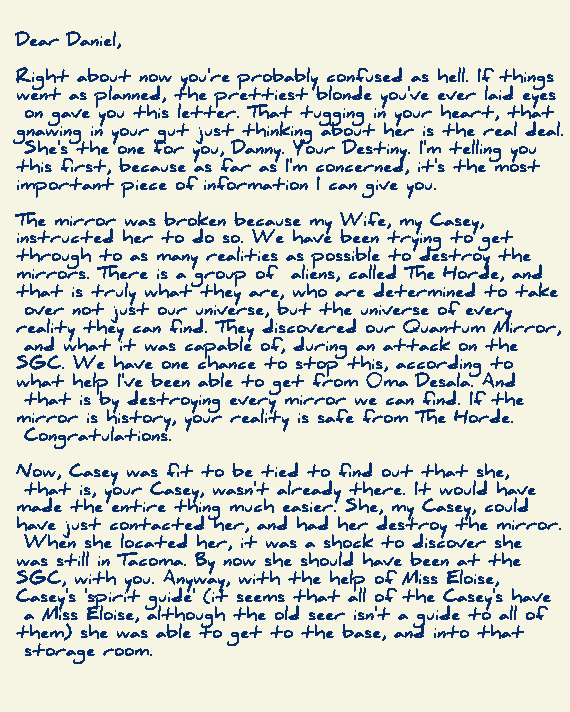 Dear Daniel,
Right about now you're probably confused as hell. If things
went as planned, the prettiest blonde you've ever laid eyes
on gave you this letter. That tugging in your heart, that
gnawing in your gut just thinking about her is the real deal.
She's the one for you, Danny. Your Destiny. I'm telling you
this first, because as far as I'm concerned, it's the most
important piece of information I can give you.
The mirror was broken because my Wife, my Casey,
instructed her to do so. We have been trying to get
through to as many realities as possible to destroy the
mirrors. There is a group of aliens, called The Horde, and
that is truly what they are, who are determined to take
over not just our universe, but the universe of every
reality they can find. They discovered our Quantum Mirror,
and what it was capable of, during an attack on the
SGC. We have one chance to stop this, according to
what help I've been able to get from Oma Desala. And
that is by destroying every mirror we can find. If the
mirror is history, your reality is safe from The Horde.
Congratulations.
Now, Casey was fit to be tied to find out that she,
that is, your Casey, wasn't already there. It would have
made the entire thing much easier. She, my Casey, could
have just contacted her, and had her destroy the mirror.
When she located her, it was a shock to discover she
was still in Tacoma. By now she should have been at the
SGC, with you. Anyway, with the help of Miss Eloise,
Casey's 'spirit guide' (it seems that all of the Casey's have
a Miss Eloise, although the old seer isn't a guide to all of
them) she was able to get to the base, and into that
storage room.